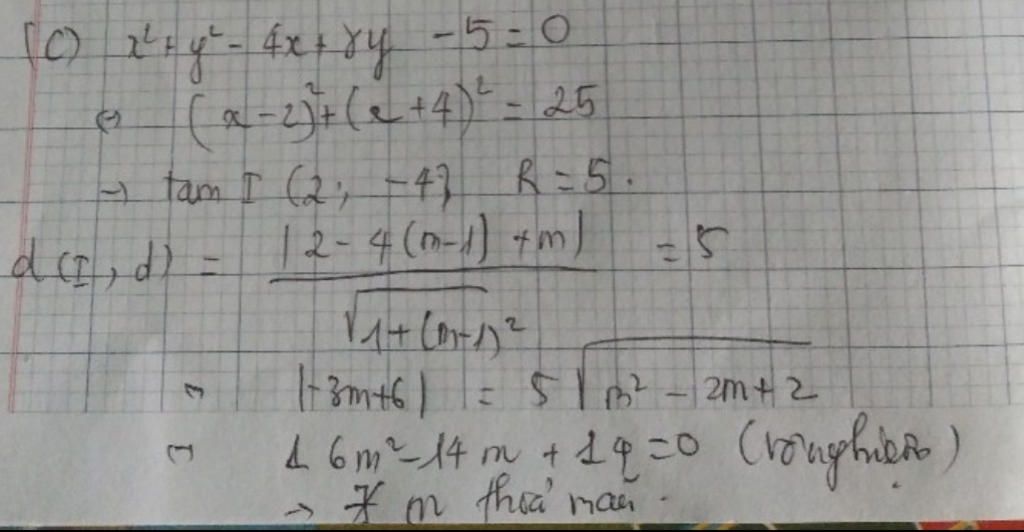 (C) x² + y² - 4x + 8y - 5 = 0
⇔ (x - 2)² + (x + 4)² = 25
→ tam I (2; -4} R = 5.
d(I, d) = |2 - 4(m-1) + m| / √1 + (m-1)² = 5
⇔ |-3m+6| = 5√m² - 2m + 2
⇔ 16m² - 14m + 14 = 0 (vô nghiệm)
→ ∄ m thoả mãn.